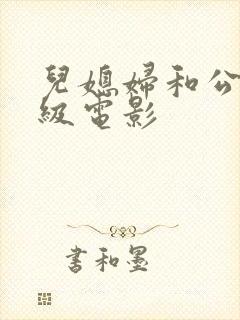 兒媳婦和公
級電影
書和墨